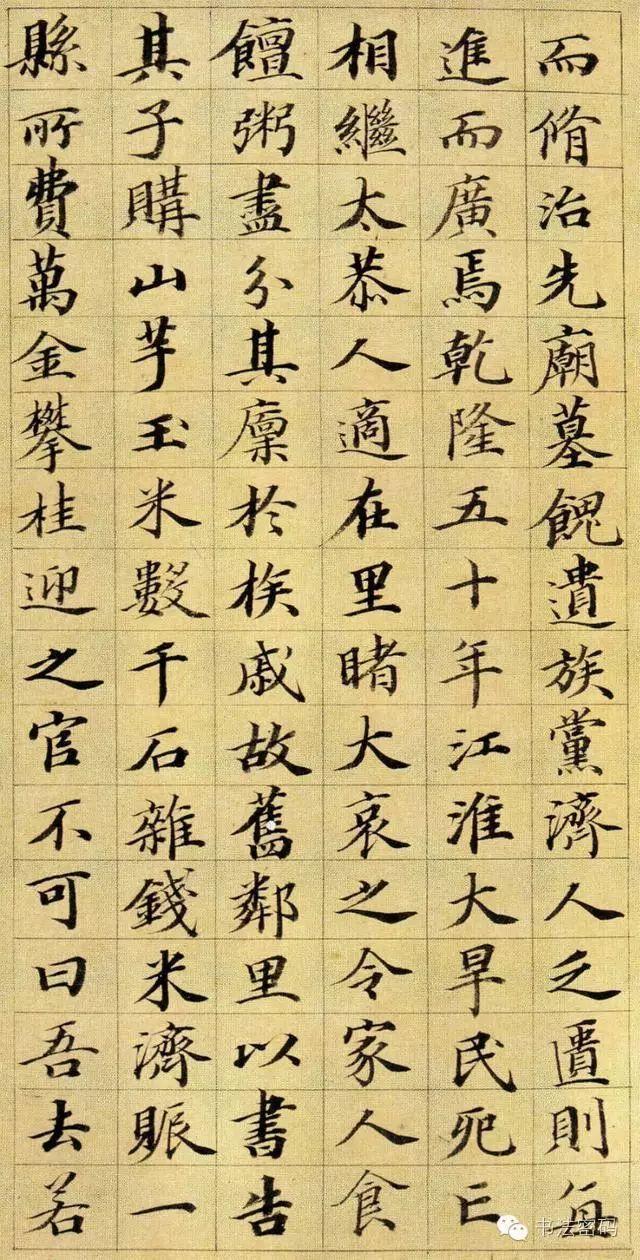 而脩治先廟墓餽遺族黨濟人乏匱則自
進而廣焉乾隆五十年江淮大旱民死亡
相繼太恭人適在里睹大哀之令家人食
饘粥盡分其廩於族戚故舊鄰里以書告
其子購山芋玉米數千石雜錢米濟賑一
縣所費萬金攀桂迎之官不可曰吾去若
书法密码